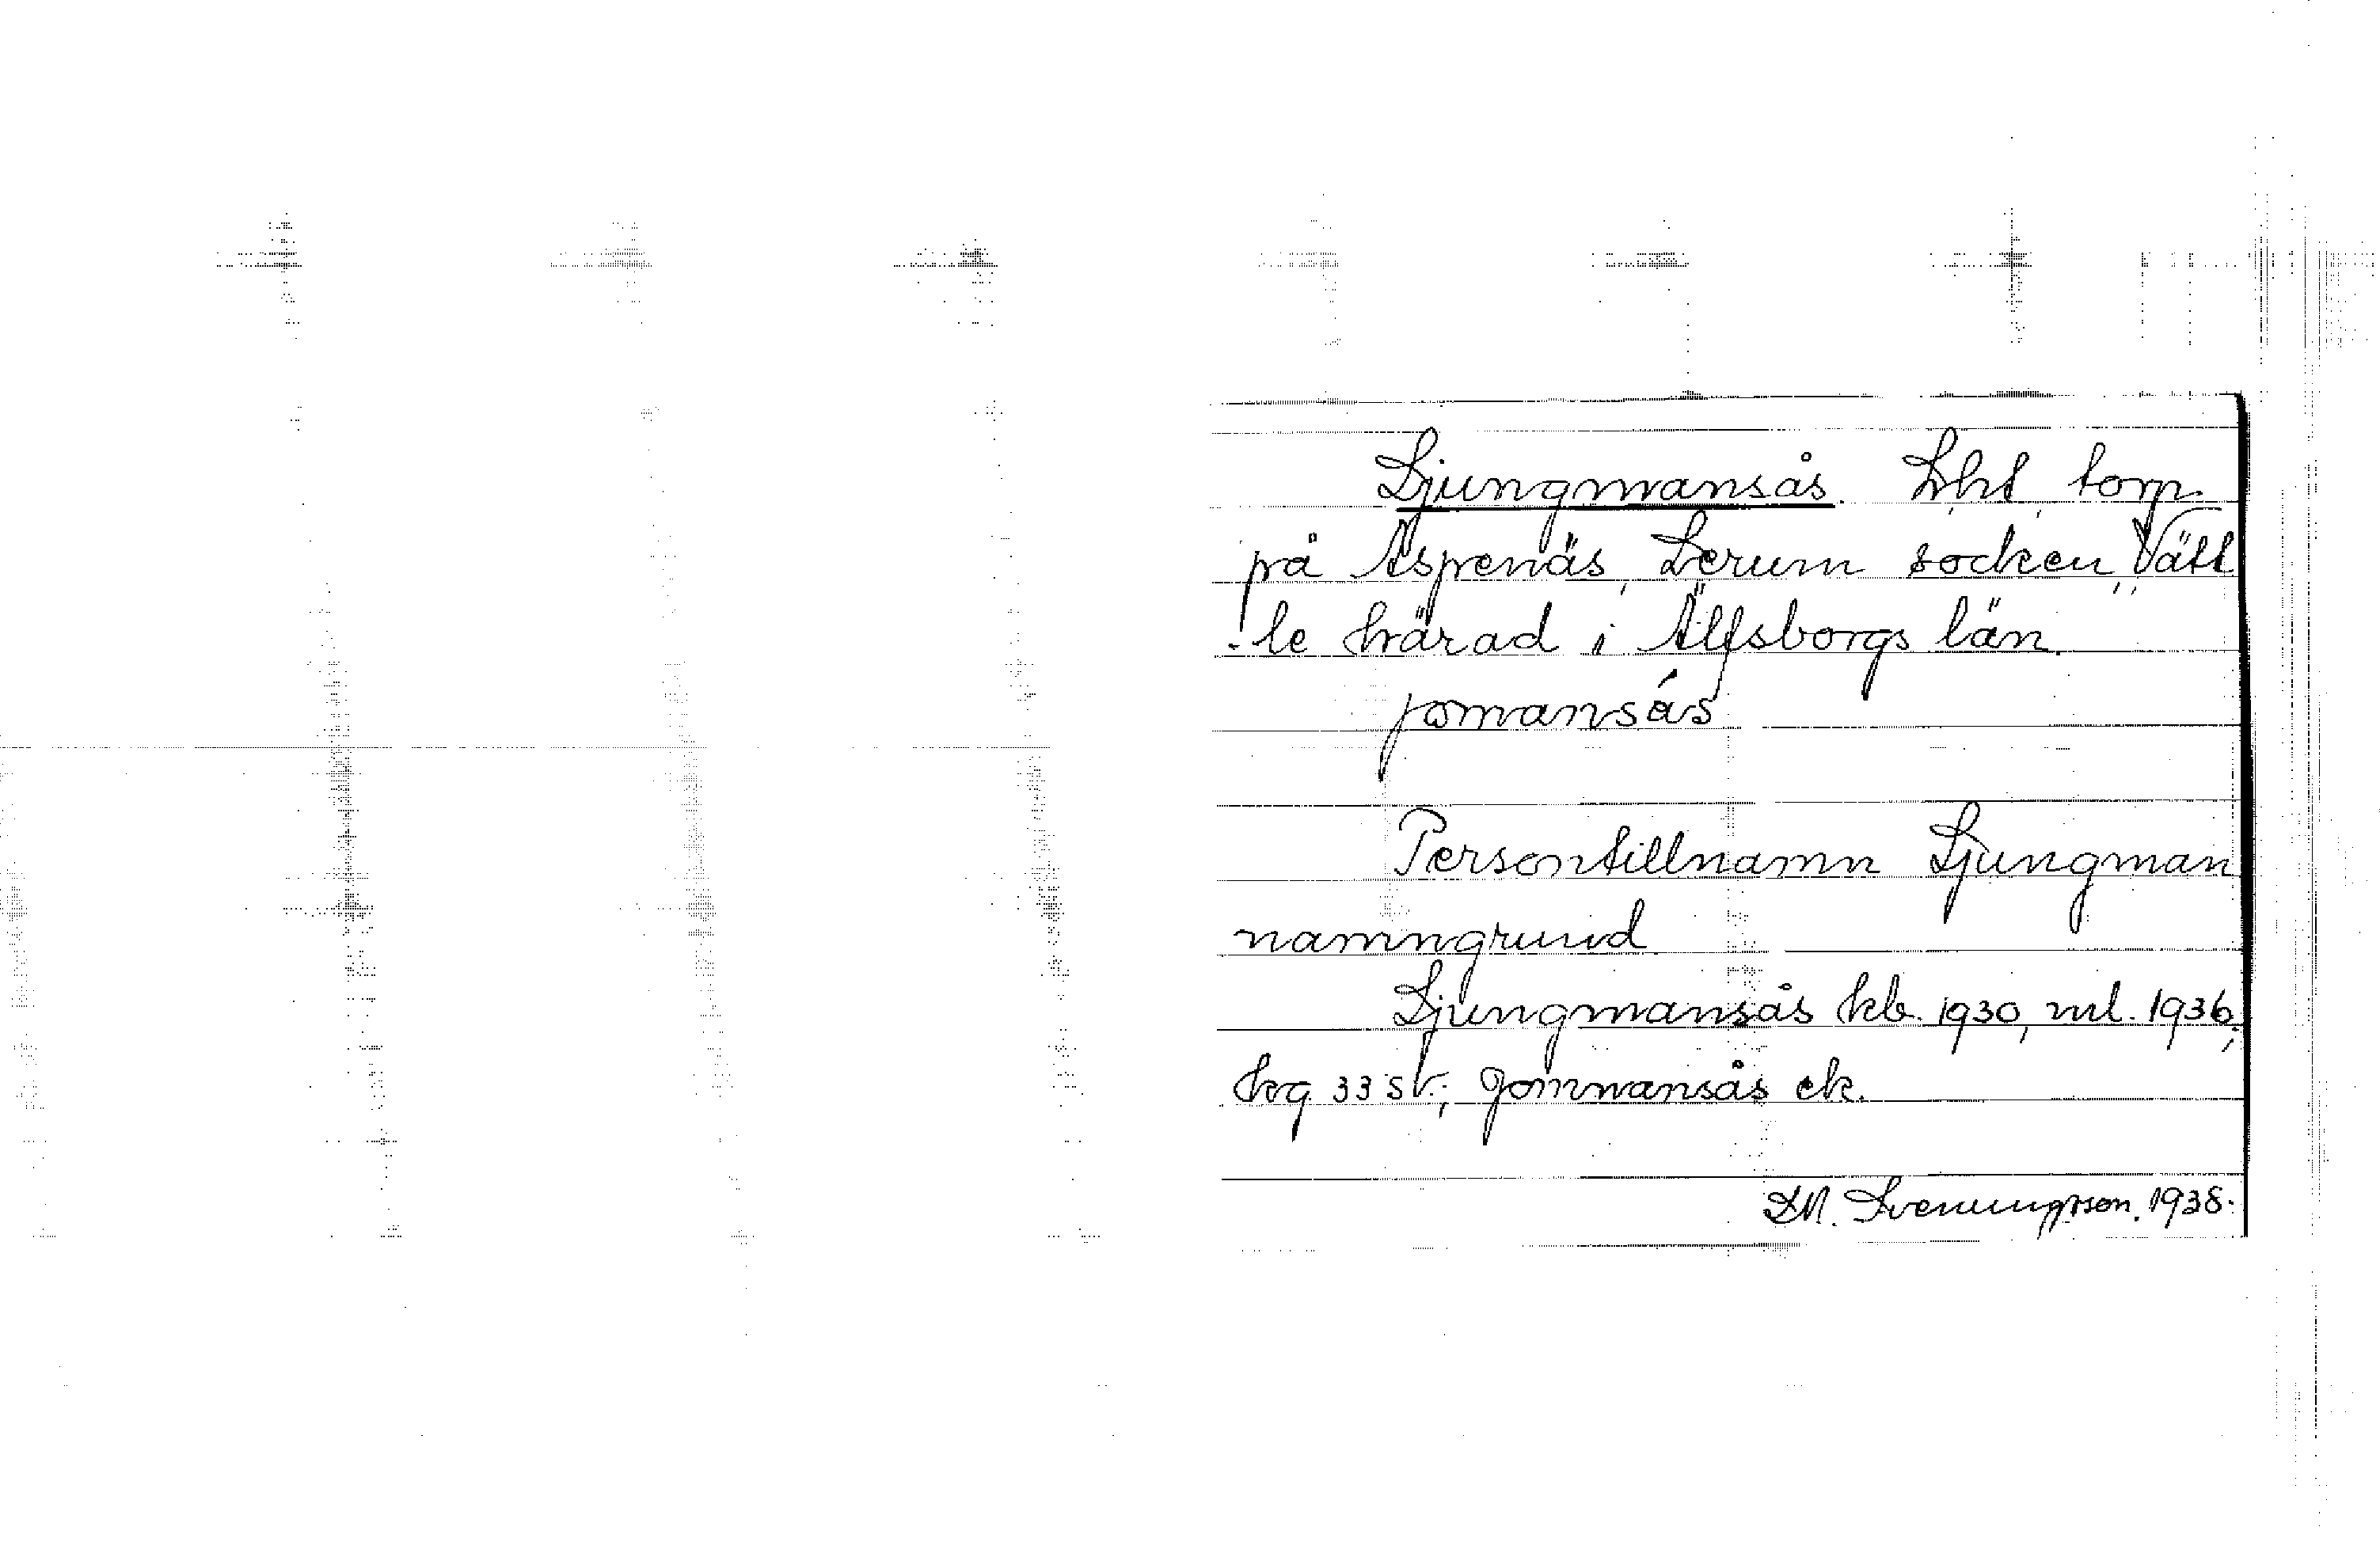 Ljungmansås. Lht, torp
på Aspenäs, Lerum socken, Vätt
-le härad i Älfsborgs län.
jomansås
Persontillnamn Ljungman
namngrund
Ljungmansås kb. 1930, ml. 1936,
hg 33 sv.; Jommansås ek.
Svenungsson. 1938.